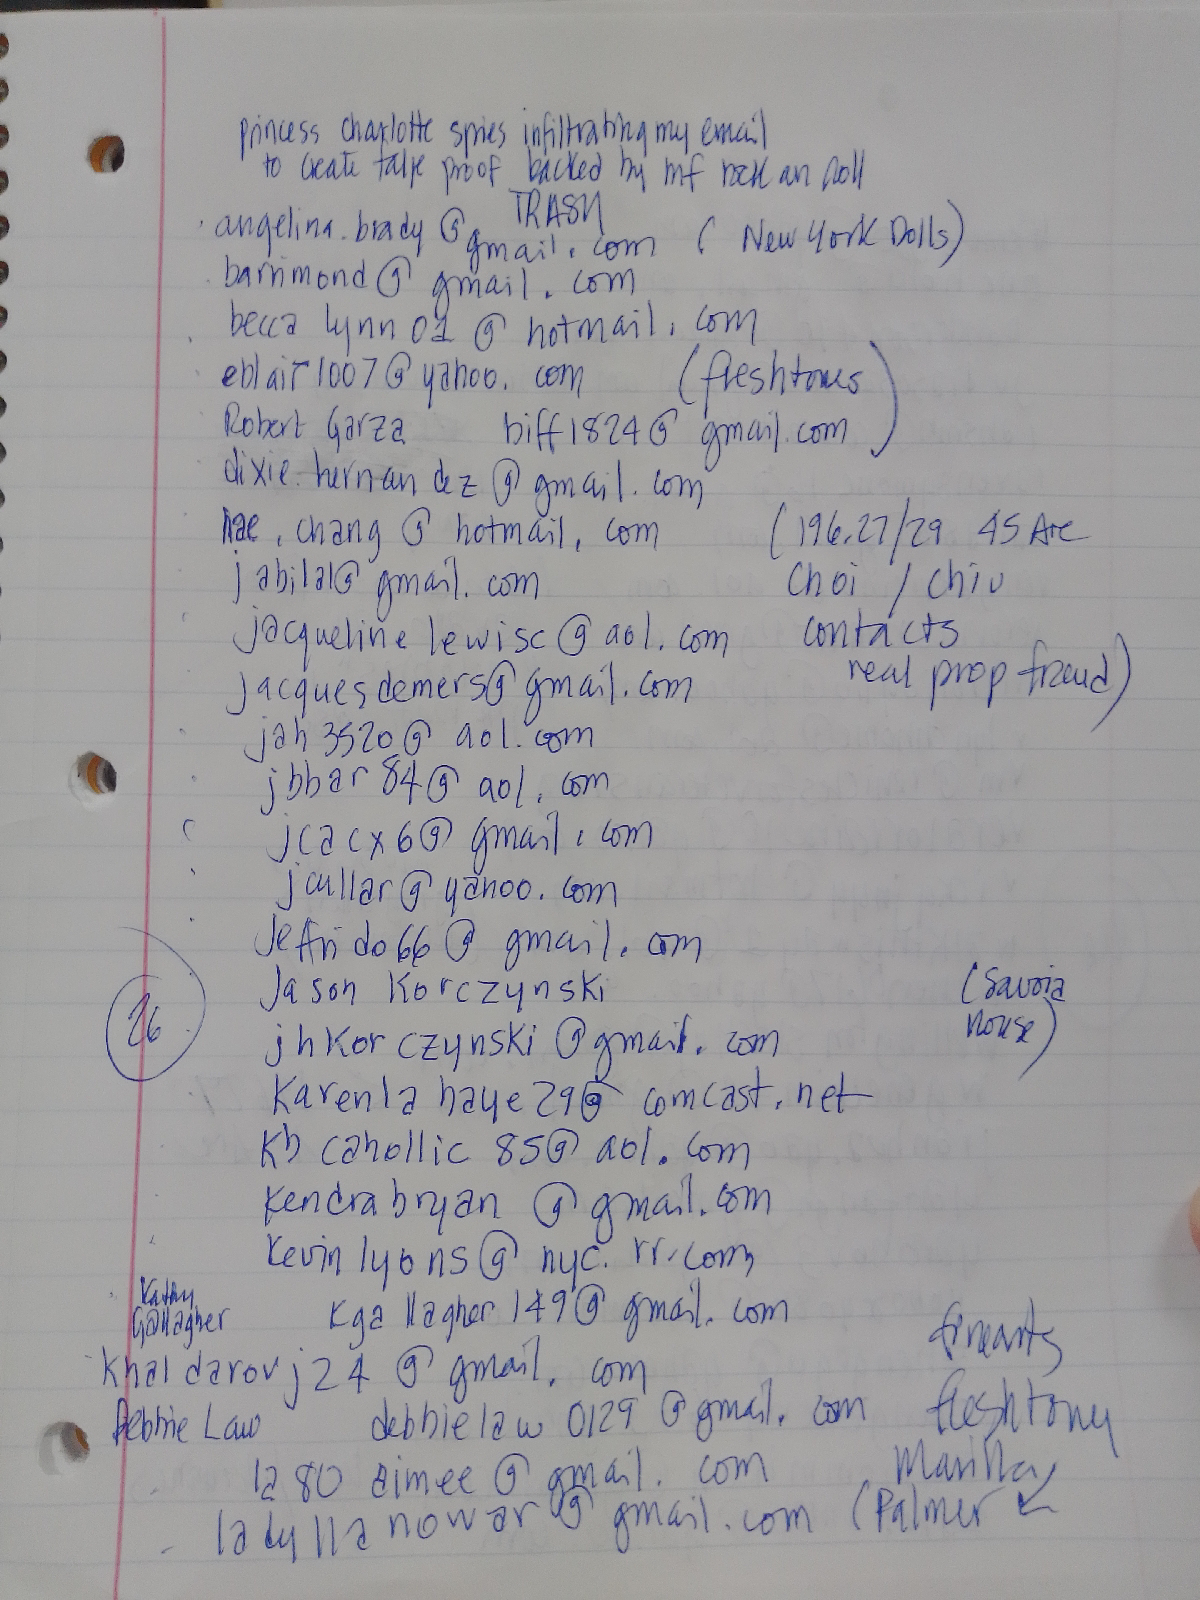 princess charlotte spies infiltrating my email
to create false proof backed by mf rock an roll
TRASH
angelina.brady@gmail.com (New York Dolls)
barrimond@gmail.com
becca lynn 01@hotmail.com
eblair1007@yahoo.com (fleshtones
Robert Garza biff1824@gmail.com)
dixie.hernandez@gmail.com
hae.chang@hotmail.com (196.27/29 45 Ave
jabilal@gmail.com Choi / Chiu
jacquelinelewisc@aol.com contacts
jacquesdemers@gmail.com real prop fraud)
jah3520@aol.com
jbbar84@aol.com
jcacx6@gmail.com
jcullar@yahoo.com
@gmail.com
Jason Korczynski (Savoia
jhkorczynski@gmail.com house)
26
Karenlahaye29@comcast.net
kbcahollic85@aol.com
kendrabryan@gmail.com
kevinlyons@nyc.rr.com
Kathy
Gallagher kgallagher149@gmail.com
khaldarovj24@gmail.com finearts
Debbie Law debbielaw0129@gmail.com fleshtony
la80aimee@gmail.com
ladyllanowar@gmail.com (Palmer